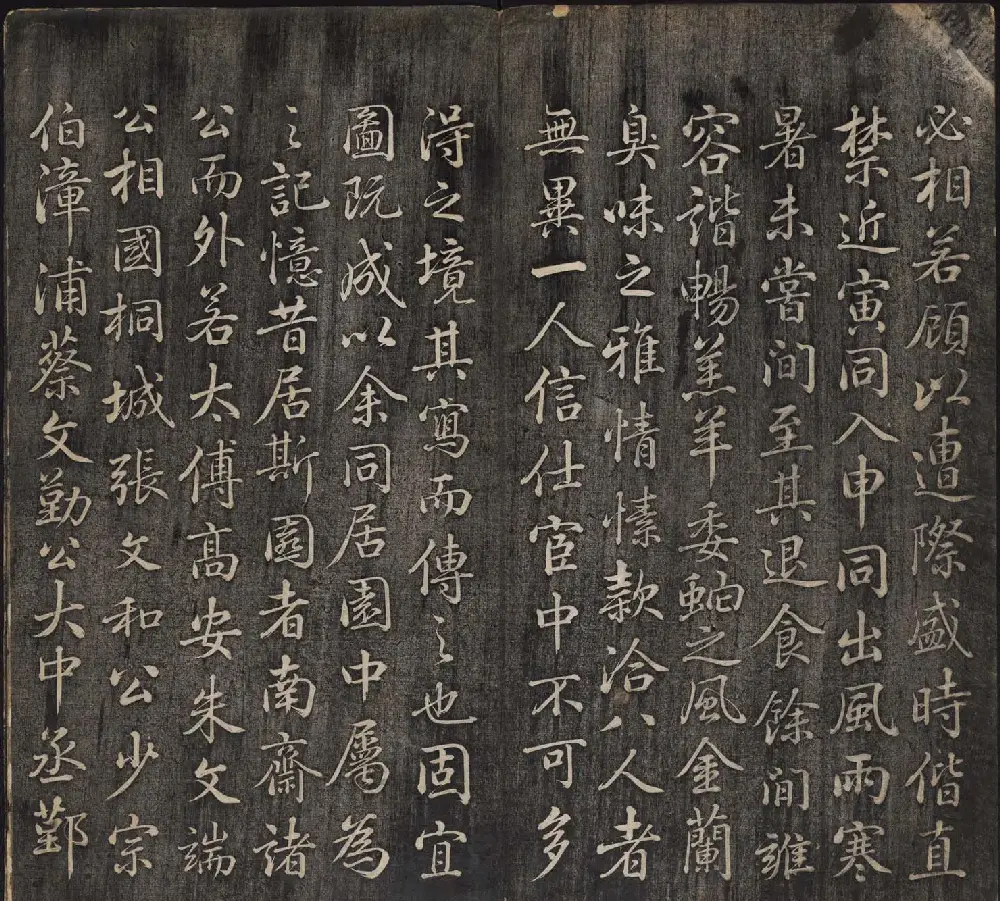 必相若顧以遭際盛時偕直
禁近寅同入申同出風雨寒
暑未嘗間至其退食餘閒雖
容諧暢羔羊委蛐之風金蘭
臭味之雅情愫款洽八人者
無異一人信仕宦中不可多
得之境其寫而傳之也固宜
圖既成以余同居園中屬為
之記憶昔居斯園者南齋諸
公而外若太傅高安朱文端
公相國桐城張文和公少宗
伯漳浦蔡文勤公大中丞鄞